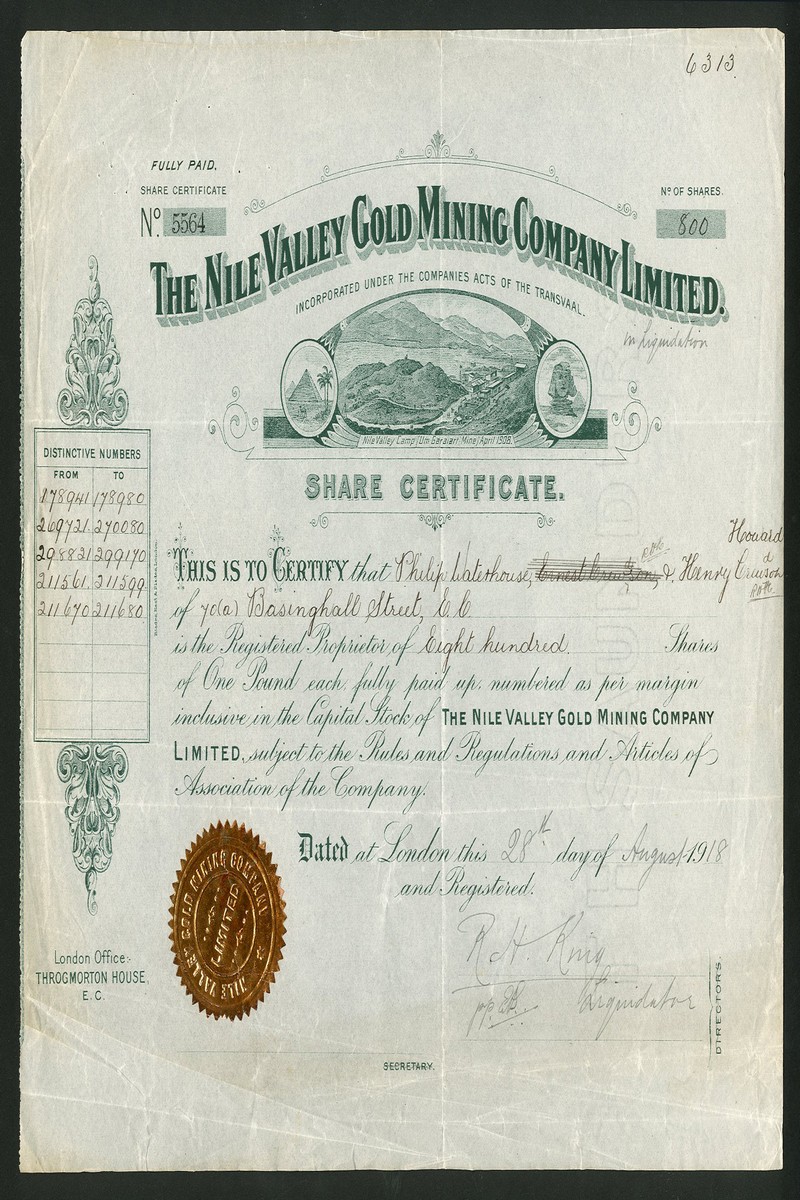 6313
FULLY PAID.
SHARE CERTIFICATE
Nº 5564
Nº OF SHARES.
800
THE NILE VALLEY GOLD MINING COMPANY LIMITED.
INCORPORATED UNDER THE COMPANIES ACTS OF THE TRANSVAAL.
in Liquidation
Nile Valley Camp (Um Garaiart Mine) April 1908.
SHARE CERTIFICATE.
DISTINCTIVE NUMBERS
FROM TO
178941 178980
269721 270080
298821 299170
211561 211599
211670 211680
Howard
THIS IS TO CERTIFY that Philip Waterhouse, & Henry Crewdson
of 70(a) Basinghall Street, E.C
is the Registered Proprietor of Eight hundred. Shares
of One Pound each fully paid up numbered as per margin
inclusive in the Capital Stock of THE NILE VALLEY GOLD MINING COMPANY
LIMITED, subject to the Rules and Regulations and Articles of
Association of the Company.
Dated at London this 28th day of August 1918
and Registered.
NILE VALLEY GOLD MINING COMPANY
LIMITED
London Office:-
THROGMORTON HOUSE,
E.C.
R. H. King
Liquidator
DIRECTORS.
SECRETARY.